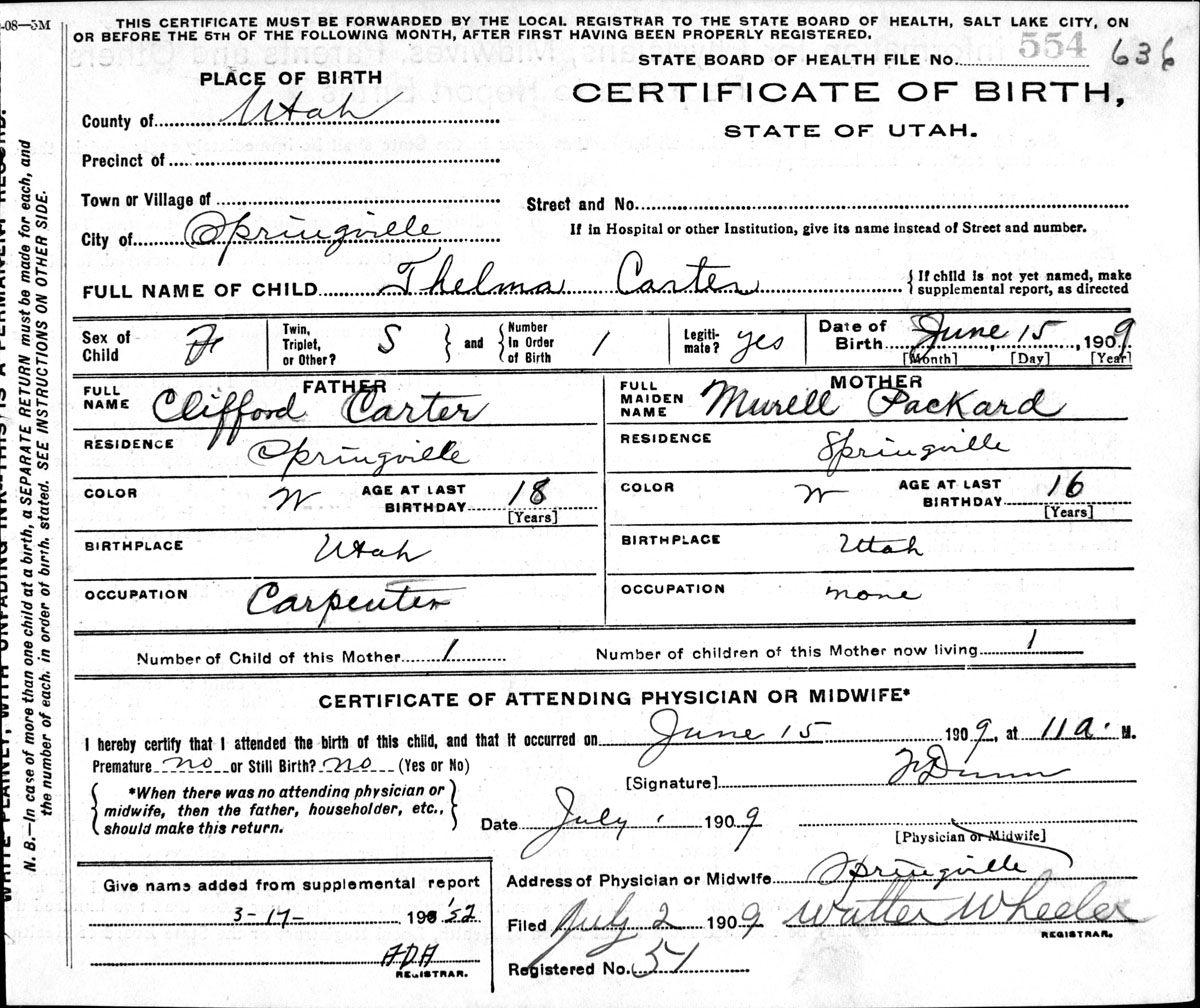 -08—5M
THIS CERTIFICATE MUST BE FORWARDED BY THE LOCAL REGISTRAR TO THE STATE BOARD OF HEALTH, SALT LAKE CITY, ON
OR BEFORE THE 5TH OF THE FOLLOWING MONTH, AFTER FIRST HAVING BEEN PROPERLY REGISTERED.
STATE BOARD OF HEALTH FILE No. 554 636
PLACE OF BIRTH
CERTIFICATE OF BIRTH,
STATE OF UTAH.
County of Utah
Precinct of
Town or Village of
Street and No.
City of Springville
If in Hospital or other Institution, give its name instead of Street and number.
FULL NAME OF CHILD Thelma Carter { If child is not yet named, make
supplemental report, as directed
Sex of Child F Twin, Triplet, or Other? S } and { Number In Order of Birth 1 Legiti-mate? yes Date of Birth June 15, 1909
[Month] [Day] [Year]
FATHER
FULL NAME Clifford Carter
RESIDENCE Springville
COLOR W AGE AT LAST BIRTHDAY 18
[Years]
BIRTHPLACE Utah
OCCUPATION Carpenter
MOTHER
FULL MAIDEN NAME Murell Packard
RESIDENCE Springville
COLOR W AGE AT LAST BIRTHDAY 16
[Years]
BIRTHPLACE Utah
OCCUPATION none
Number of Child of this Mother 1 Number of children of this Mother now living 1
CERTIFICATE OF ATTENDING PHYSICIAN OR MIDWIFE*
I hereby certify that I attended the birth of this child, and that it occurred on June 15 1909, at 11 a. M.
Premature no or Still Birth? no (Yes or No)
[Signature] Dunn
{ *When there was no attending physician or
midwife, then the father, householder, etc.,
should make this return. }
Date July 1909
[Physician or Midwife]
Give name added from supplemental report
3-17- 190 '52
ADA
REGISTRAR.
Address of Physician or Midwife Springville
Filed July 2 1909 Walter Wheeler
REGISTRAR.
Registered No. 51
WRITE PLAINLY, WITH UNFADING INK—THIS IS A PERMANENT RECORD.
N. B.—In case of more than one child at a birth, a SEPARATE RETURN must be made for each, and
the number of each, in order of birth, stated. SEE INSTRUCTIONS ON OTHER SIDE.